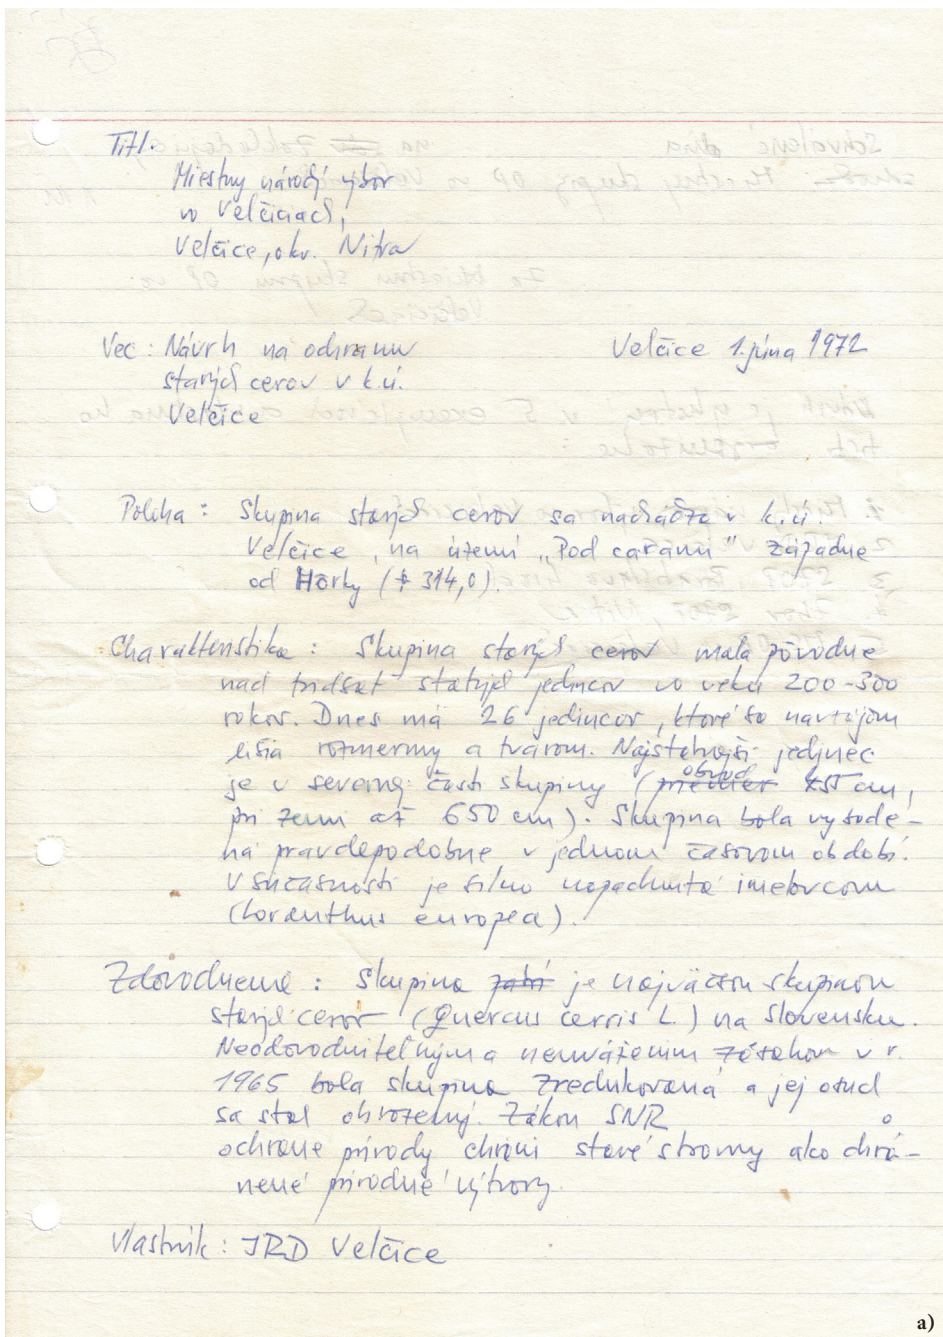 Titl.
Miestny národý výbor
vo Velčiciach,
Velčice, okr. Nitra
Vec : Návrh na ochranu
Velčice 1. júna 1972
starých cerov v k.ú.
Velčice
Poloha : Skupina starých cerov sa nachádza v k.ú.
Velčice, na území „Pod carami" západne
od Hôrky ( 314,0).
Charakteristika : Skupina starých cerov mala pôvodne
nad tridsať statných jedincov vo veku 200-300
rokov. Dnes má 26 jedincov, ktoré sa navzájom
líšia rozmermy a tvarom. Najstatnejší jedinec
je v severnej časti skupiny (priemer obvod cm,
pri zemi až 650 cm). Skupina bola vysade-
ná pravdepodobne v jednom časovom období.
V súčasnosti je silno napadnutá imelovcom
(Loranthus europea).
Zdôvodnenie : Skupina je najväčšou skupinou
starých cerov (Quercus cerris L.) na Slovensku.
Neodôvodniteľným a neuváženim zásahom v r.
1965 bola skupina zredukovaná a jej osud
sa stal ohrozený. Zákon SNR o
ochrane prírody chráni staré stromy ako chrá-
nené prírodné výtvory.
Vlastník : JRD Velčice
a)